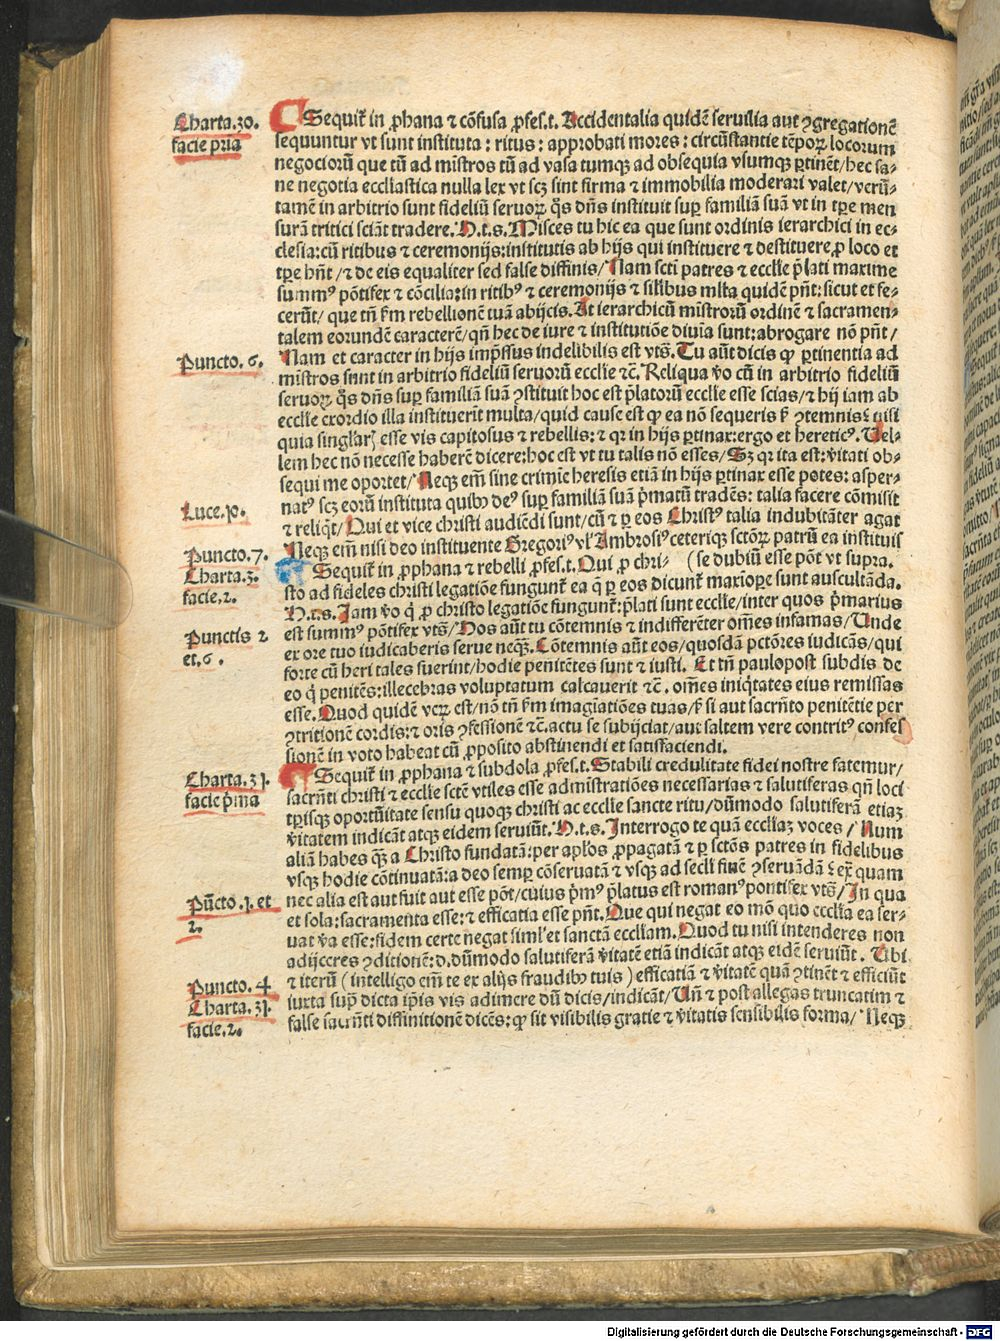 Charta.30.
facie pria
Sequit᷑ in ꝓphana ⁊ cõfusa ꝓfes.t. Accidentalia quidẽ seruilia aut ꝯgregationẽ
sequuntur vt sunt instituta : ritus : approbati mores : circũstantie tẽporꝝ locorum
negociorũ que tũ ad mĩstros tũ ad vasa tumqꝫ ad obsequia vsumqꝫ ꝑtinẽt/hec sa⸗
ne negotia eccl̃iastica nulla lex vt scꝫ sint firma ⁊ immobilia moderari valet/verũ⸗
tamẽ in arbitrio sunt fideliũ seruorꝝ q̃s dñs instituit suꝑ familiã suã vt in tꝑe men
surã tritici sciãt tradere. N.t.s. Misces tu hic ea que sunt ordinis ierarchici in ec⸗
clesia:cũ ritibus ⁊ ceremonijs:institutis ab hijs qui instituere ⁊ destituere,ꝓ loco et
tꝑe hñt /⁊ de eis equaliter sed false diffinis/ Nam scti patres ⁊ eccl̃ie p̃lati maxime
summꝰ põtifex ⁊ cõcilia:in ritibꝰ ⁊ ceremonijs ⁊ sil̃ibus ml̃ta quidẽ pñt: sicut et fe⸗
cerũt/ que tñ ẜm rebellionẽ tuã abijcis. At ierarchicũ mĩstrorũ ordinẽ ⁊ sacramen⸗
talem eorundẽ caracterẽ/ qñ hec de iure ⁊ institutiõe diuĩa sunt:abrogare nõ pñt/
Puncto. 6.
Nam et caracter in hijs imp̃ssus indelibilis est vtꝫ. Tu aũt dicis ꝙ ꝑtinentia ad
mĩstros sunt in arbitrio fideliũ seruorũ eccl̃ie ⁊c̃. Reliqua v̉o cũ in arbitrio fideliũ
seruorꝝ q̃s dñs suꝑ familiã suã ꝯstituit hoc est p̃latorũ eccl̃ie esse scias/⁊ hij iam ab
eccl̃ie exordio illa instituerĩt multa/quid cause est ꝙ ea nõ sequeris ẜ ꝯtemnis: nisi
quia singl̃arꝫ esse vis capitosus ⁊ rebellis: ⁊ qꝛ in hijs ꝑtinax:ergo et hereticꝰ. Vel⸗
lem hec nõ necesse haberẽ dicere:hoc est vt tu talis nõ esses/ Sꝫ qꝛ ita est: v̉itati ob⸗
sequi me oportet/ Neqꝫ em̃ sine crimĩe heresis etiã in hijs ꝑtinax esse potes: asper⸗
Luce.ꝓ.
natꝰ scꝫ eorũ instituta quibꝰ deꝰ suꝑ familiã suã p̃matũ tradẽs: talia facere cõmisit
⁊ reliq̃t/ Qui et vice christi audiẽdi sunt/cũ ⁊ ꝑ eos Christꝰ talia indubitãter agat
Puncto. 7.
Neqꝫ em̃ nisi deo instituente Gregoriꝰ vl̃ Ambrosiꝰ ceteriqꝫ sctõrꝝ patrũ ea instituis
Charta.3.
facie,2.
Sequit᷑ in ꝓphana ⁊ rebelli ꝓfes.t. Qui ꝓ chri⸗ (se dubiũ esse põt vt supra.
sto ad fideles christi legatiõe fungunt᷑ ea q̃ ꝑ eos dicunt᷑ maxĩopere sunt auscultãda.
N.t.s. Iam v̉o q̃ ꝓ christo legatiõe fungunt᷑:p̃lati sunt eccl̃ie/inter quos p̃marius
Punctis 2
et.6 .
est summꝰ põtifex vtꝫ/ Hos aũt tu cõtemnis ⁊ indifferẽter om̃es infamas/ Unde
ex ore tuo iudicaberis serue neqꝫ. Cõtemnis aũt eos/quosdã pctõres iudicãs/qui
forte cũ heri tales fuerint/hodie penitẽtes sunt ⁊ iusti. Et tñ paulopost subdis de
eo q̃ penitẽs:illecebras voluptatum calcauerit ⁊c̃. om̃es iniq̃tates eius remissas
esse. Quod quidẽ verꝝ est/ nõ tñ ẜm imagiatiões tuas/ẜ si aut sacrñto penitẽtie per
ꝯtritionẽ cordis:⁊ oris ꝯfessionẽ ⁊c̃.actu se subijciat/aut saltem vere contritꝰ confes
sionẽ in voto habeat cũ ꝓposito abstinendi et satisfaciendi.
Charta.31.
facie p̃ma
Sequit᷑ in ꝓphana ⁊ subdola ꝓfes.t. Stabili credulitate fidei nostre fatemur/
sacrñti christi ⁊ eccl̃ie sctẽ vtiles esse admĩstratiões necessarias ⁊ salutiferas qñ loci
tꝑisqꝫ oportũitate sensu quoqꝫ christi ac eccl̃ie sancte ritu/ dũmodo salutiferã etiaꝫ
v̉itatem indicãt atqꝫ eidem seruiũt. N.t.s. Interrogo te quã eccl̃iaꝫ voces / Num
aliã habes qꝫ a Christo fundatã:per apl̃os ꝓpagatã ⁊ ꝑ sctõs patres in fidelibus
vsqꝫ hodie cõtinuatã:a deo semꝑ cõseruatã ⁊ vsqꝫ ad secl̃i finẽ ꝯseruãdã: ex̃ quam
Pũcto.1.et
2.
nec alia est aut fuit aut esse põt/cuius p̃mꝰ p̃latus est romanꝰ pontifex vtꝫ/ In qua
et sola:sacramenta esse:⁊ efficatia esse pñt. Que qui negat eo mõ quo eccl̃ia ea ser⸗
uat v̉a esse:fidem certe negat siml̃ et sanctã eccl̃iam. Quod tu nisi intenderes non
adijceres ꝯditionẽ:d,dũmodo salutiferã v̉itatẽ etiã indicãt atqꝫ eidẽ seruiũt. Ubi
Puncto. 4.
⁊ iterũ ( intelligo em̃ te ex alijs fraudibꝰ tuis ) efficatiã ⁊ v̉itatẽ quã ꝯtinẽt ⁊ efficiũt
Charta.31.
iuxta supͣ dicta ip̃is vis adimere dũ dicis/indicãt/ Uñ ⁊ post allegas truncatim ⁊
facie.2.
false sacrñti diffinitionẽ dicẽs: ꝙ sit visibilis gratie ⁊ v̉itatis sensibilis forma/ Neqꝫ
Digitalisierung gefördert durch die Deutsche Forschungsgemeinschaft - DFG